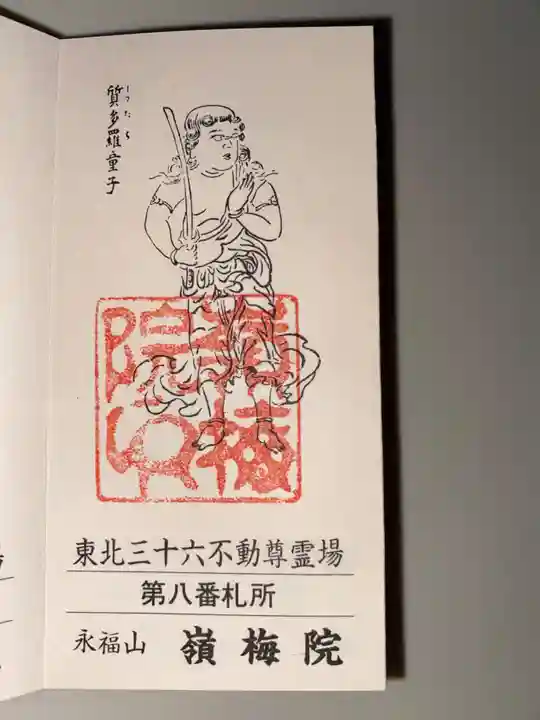 質多羅童子
しつたら
嶺梅
院印
東北三十六不動尊霊場
第八番札所
永福山 嶺梅院